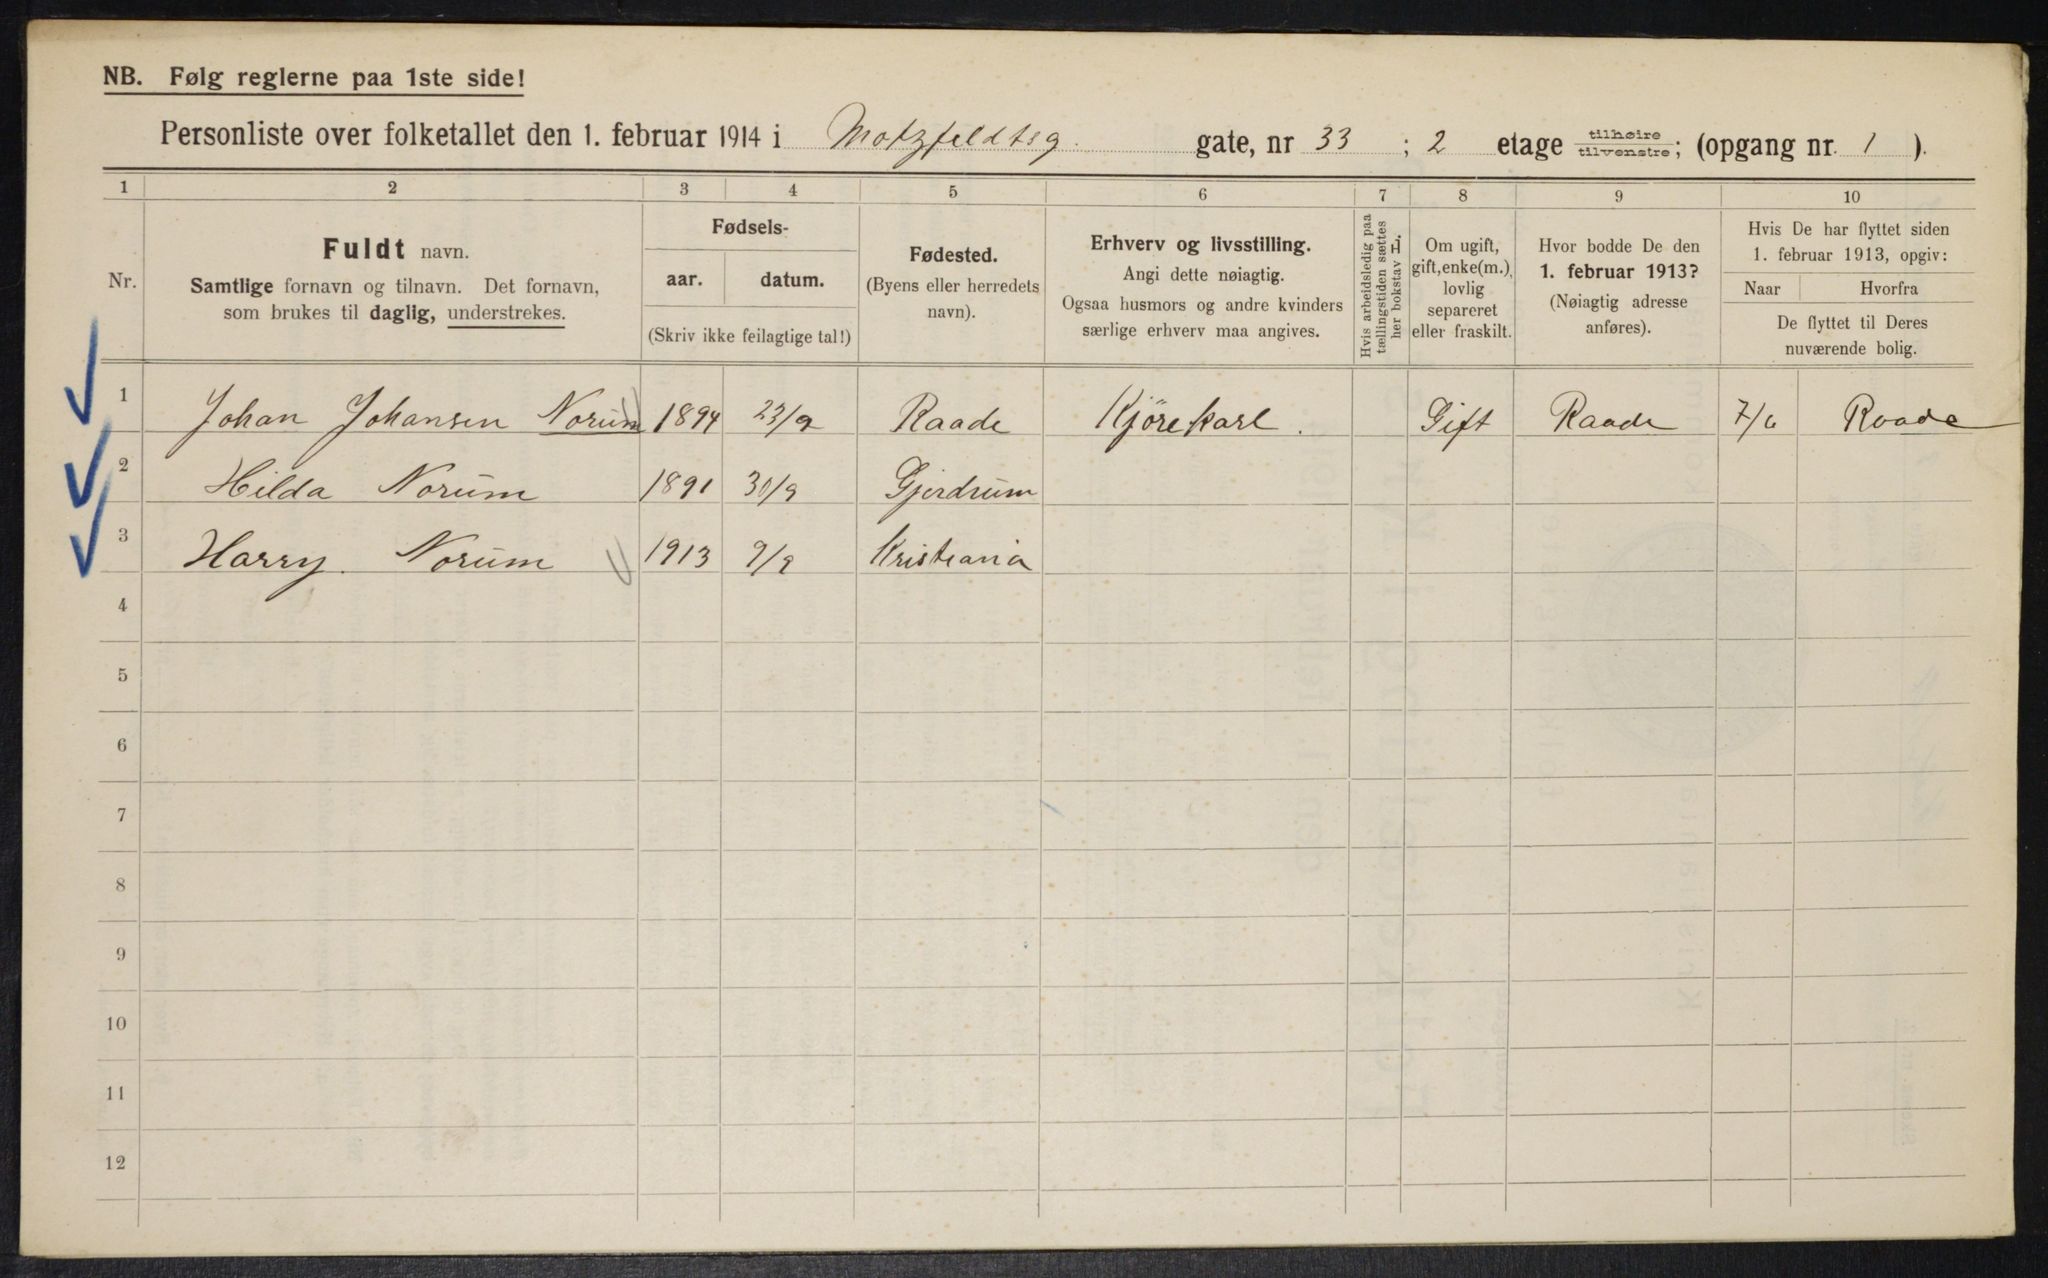 NB. Følg reglerne paa 1ste side!
Personliste over folketallet den 1. februar 1914 i Motzfeldtsg. gate, nr 33 ; 2 etage tilhøire tilvenstre; (opgang nr. 1 ).
1 2 3 4 5 6 7 8 9 10
Nr.
Fuldt navn.
Samtlige fornavn og tilnavn. Det fornavn,
som brukes til daglig, understrekes.
Fødsels-
aar. datum.
(Skriv ikke feilagtige tal!)
Fødested.
(Byens eller herredets
navn).
Erhverv og livsstilling.
Angi dette nøiagtig.
Ogsaa husmors og andre kvinders
særlige erhverv maa angives.
Hvis arbeidsledig paa
tællingstiden sættes
her bokstav L.
Om ugift,
gift, enke(m.),
lovlig
separeret
eller fraskilt.
Hvor bodde De den
1. februar 1913?
(Nøiagtig adresse
anføres).
Hvis De har flyttet siden
1. februar 1913, opgiv:
Naar Hvorfra
De flyttet til Deres
nuværende bolig.
1 Johan Johansen Norum 1894 23/9 Raade Kjørekarl. Gift Raade 7/6 Raade
2 Hilda Norum 1891 30/9 Gjerdrum
3 Harry. Norum 1913 9/9 Kristiania
4
5
6
7
8
9
10
11
12